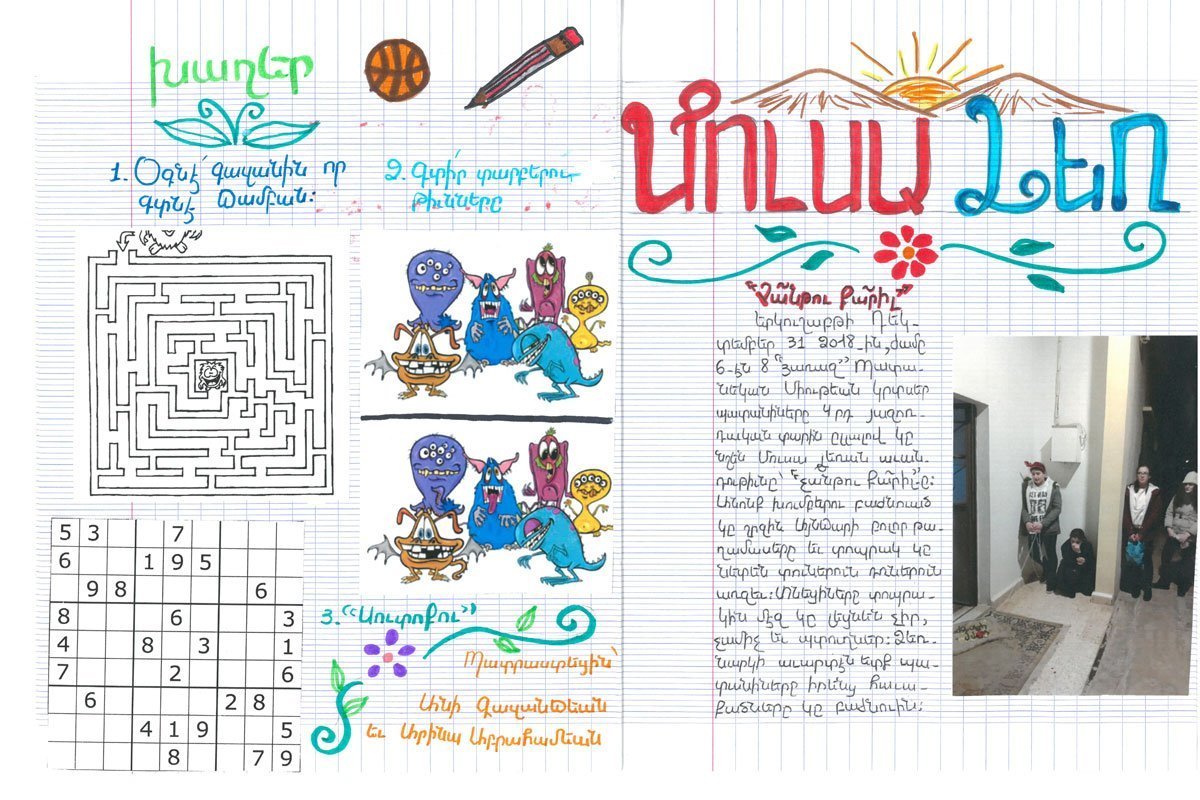 Խաղեր
1. Օգնէ՛ գազանին որ
գտնէ ճամբան:
2. Գտի՛ր տարբերու-
թիւնները
5 3 7
6 1 9 5
9 8 6
8 6 3
4 8 3 1
7 2 6
6 2 8
4 1 9 5
8 7 9
3. «Սուտոքու»
Պատրաստեցին՝
Անի Գազանճեան
եւ Արինա Աբրահամեան
Մուսա Լեռ
«Չա՜նթու Քա՜րիլ»
Երկուշաբթի Դեկ-
տեմբեր 31 2018-ին, ժամը
6-էն 8 «Շառաչ» Պատա-
նեկան Միութեան կրտսեր
պատանիները 4րդ յաջոր-
դական տարին ըլլալով կը
նշեն Մուսա լերան աւան-
դութիւնը՝ «Չանթու Քարիլ»ը:
Անոնք խումբերու բաժնուած
կը շրջին Այնճարի բոլոր թա-
ղամասերը եւ տոպրակ կը
նետեն տուներուն դռներուն
առջեւ: Տնեցիները տոպրա-
կին մէջ կը լեցնեն չիր,
չամիչ եւ պտուղներ: Ձեռ-
նարկի աւարտէն ետք պա-
տանիները իրենց հաւա-
քածները կը բաժնուին: